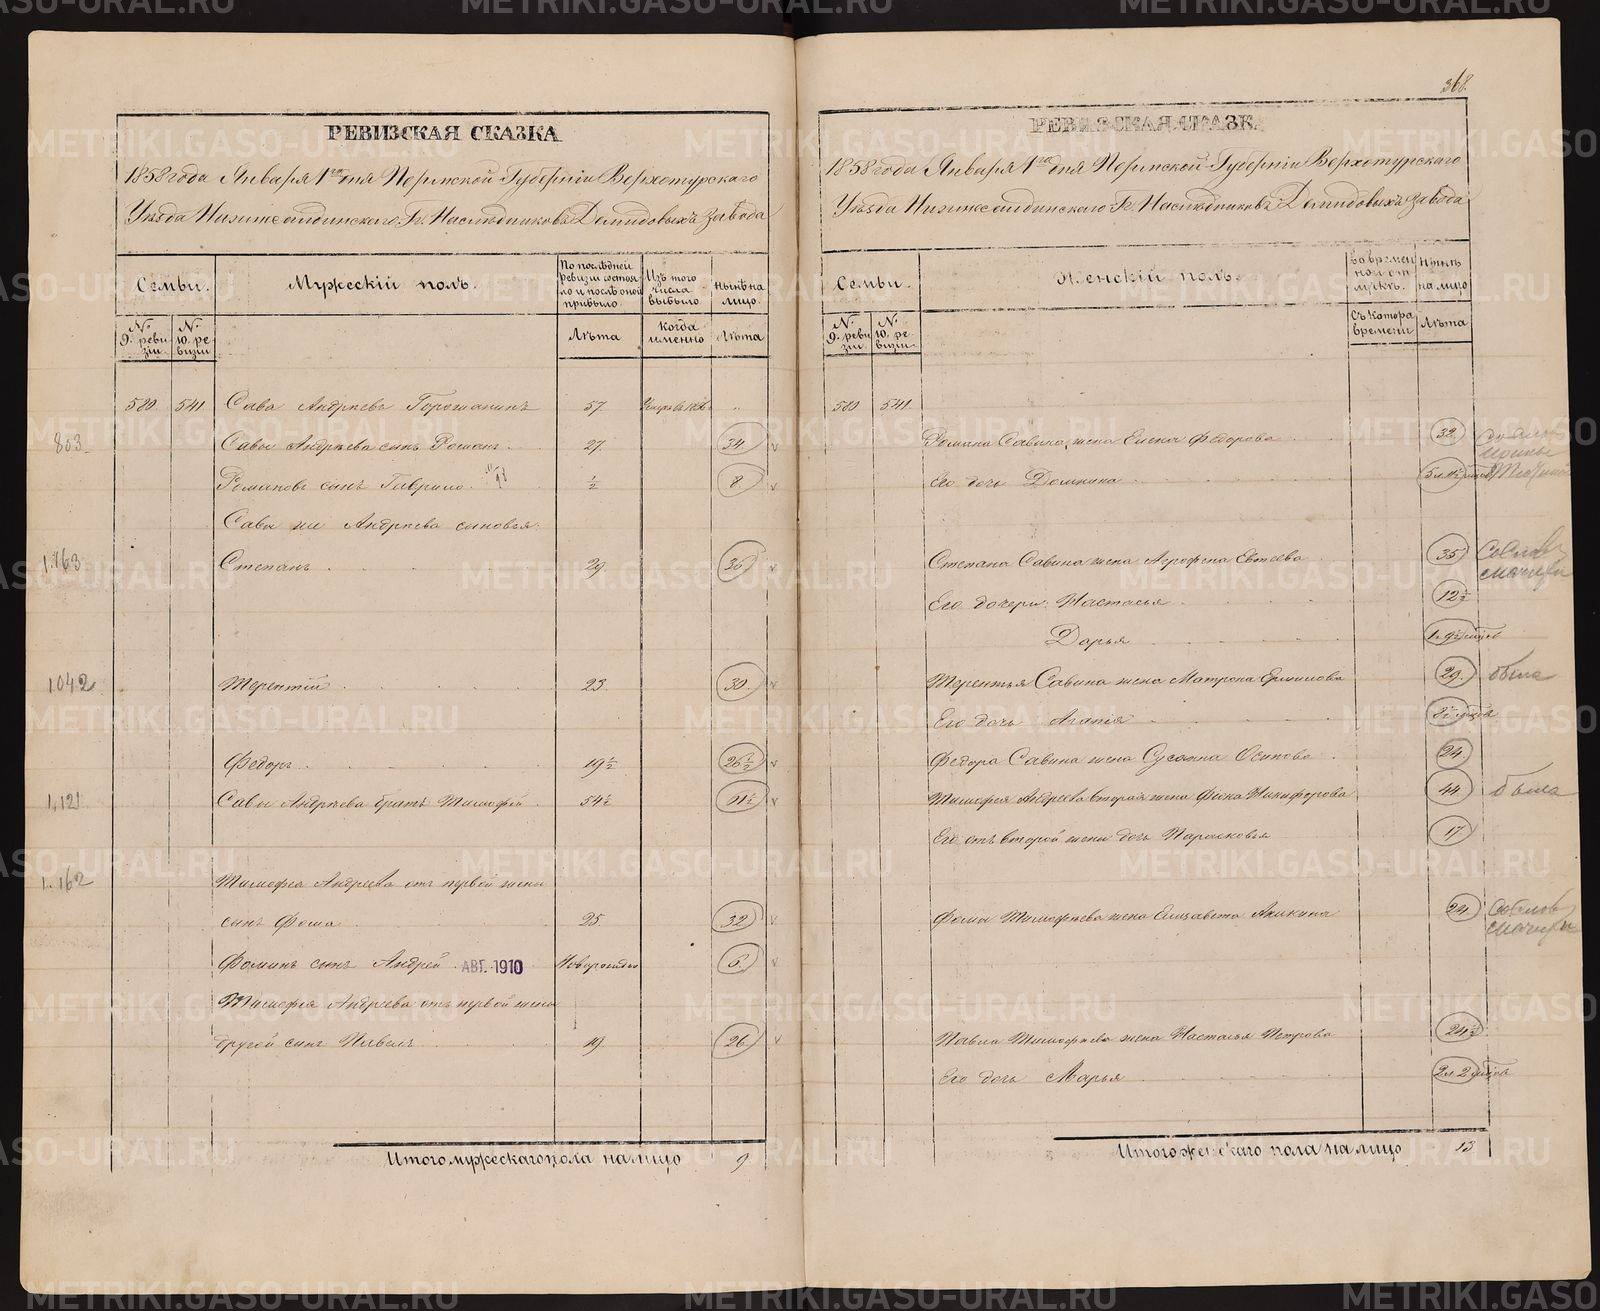 368.
РЕВИЗСКАЯ СКАЗКА
1858 года Января 1го дня Пермской Губерніи Верхотурскаго
Уѣзда Нижнесалдинскаго Гг. Наслѣдниковъ Демидовыхъ завода
Семьи.
Мужескій полъ.
По послѣдней ревизіи состояло и послѣ оной прибыло.
Изъ того числа выбыло.
Нынѣ на лицо.
№ 9. ревизіи
№ 10. ревизіи
Лѣта
Когда именно
Лѣта
580 541 Сава Андреевъ Горожанинъ 57. 1856 "
803. Савы Андрѣева сынъ Романъ 27. 34. v
Романовъ сынъ Гаврило ½ 8 v
Савы же Андрѣева сыновья:
1.163 Степанъ 29. 36 v
1042 Терентій 23. 30. v
Федоръ 19½ 26½ v
1.121 Савы Андрѣева братъ Тимофей 54½ 61½ v
1.162 Тимофея Андреева отъ первой жены
сынъ Фома 25. 32 v
Фоминъ сынъ Андрей АВГ. 1910 Новорожден 6. v
Тимофея Андреева отъ первой жены
другой сынъ Павелъ 19. 26 v
Итого мужескаго пола на лицо 9
РЕВИЗСКАЯ СКАЗК
1858 года Января 1го дня Пермской Губерніи Верхотурскаго
Уѣзда Нижнесалдинскаго Гг. Наслѣдниковъ Демидовыхъ завода
Семьи.
Женскій полъ.
Во временной отлучкѣ.
Нынѣ на лицо
№ 9. ревизіи.
№ 10. ревизіи
Съ котора времени
Лѣта
580 541.
Романа Савина жена Елена Федорова 32
Его дочь Домнина
Степана Савина жена Агрофена Евтеева 35
Его дочери: Настасья 12½
Дарья
Терентья Савина жена Матрона Ермилова 29. была
Его дочь Агапія
Федора Савина жена Сусанна Осипова 24
Тимофея Андреева вторая жена Фекла Никифорова 44. была
Его отъ второй жены дочь Парасковья 17
Фомы Тимофѣева жена Елизавета Аникина 24.
Павла Тимофѣева жена Настасья Петрова 24½
Его дочь Марья 2 л 2 мцов
Итого женскаго пола на лицо 13